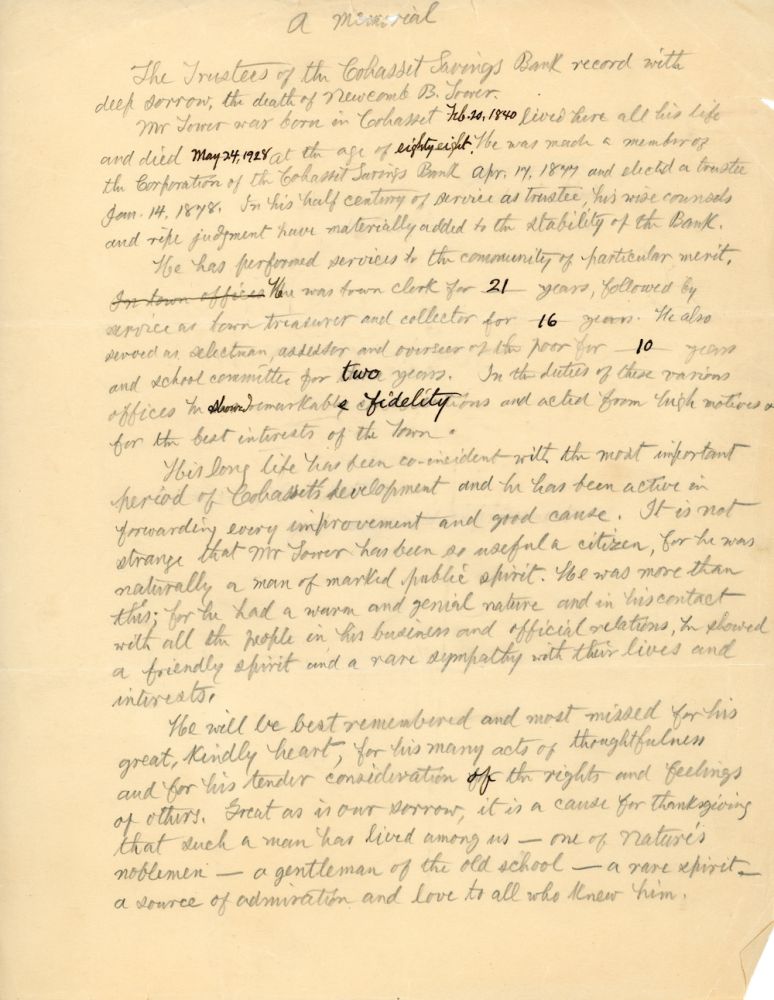 A memorial
The Trustees of the Cohasset Savings Bank record with
deep sorrow, the death of Newcomb B. Tower.
Mr Tower was born in Cohasset Feb. 20, 1840 lived here all his life
and died May 24, 1928 at the age of eighty eight. He was made a member of
the Corporation of the Cohasset Savings Bank Apr. 17, 1877 and elected a trustee
Jan. 14, 1878. In his half century of service as trustee, his wise counsels
and ripe judgment have materially added to the stability of the Bank.
He has performed services to the community of particular merit.
In town offices He was town clerk for 21 years, followed by
service as town treasurer and collector for 16 years. He also
served as selectman, assessor and overseer of the poor for 10 years
and school committee for two years. In the duties of these various
offices he showed remarkable fidelity and acted from high motives &
for the best interests of the town.
His long life has been co-incident with the most important
period of Cohasset's development and he has been active in
forwarding every improvement and good cause. It is not
strange that Mr Tower has been so useful a citizen, for he was
naturally a man of marked public spirit. He was more than
this; for he had a warm and genial nature and in his contact
with all the people in his business and official relations, he showed
a friendly spirit and a rare sympathy with their lives and
interests.
He will be best remembered and most missed for his
great, kindly heart, for his many acts of thoughtfulness
and for his tender consideration of the rights and feelings
of others. Great as is our sorrow, it is a cause for thanksgiving
that such a man has lived among us — one of Nature's
noblemen — a gentleman of the old school — a rare spirit —
a source of admiration and love to all who knew him.